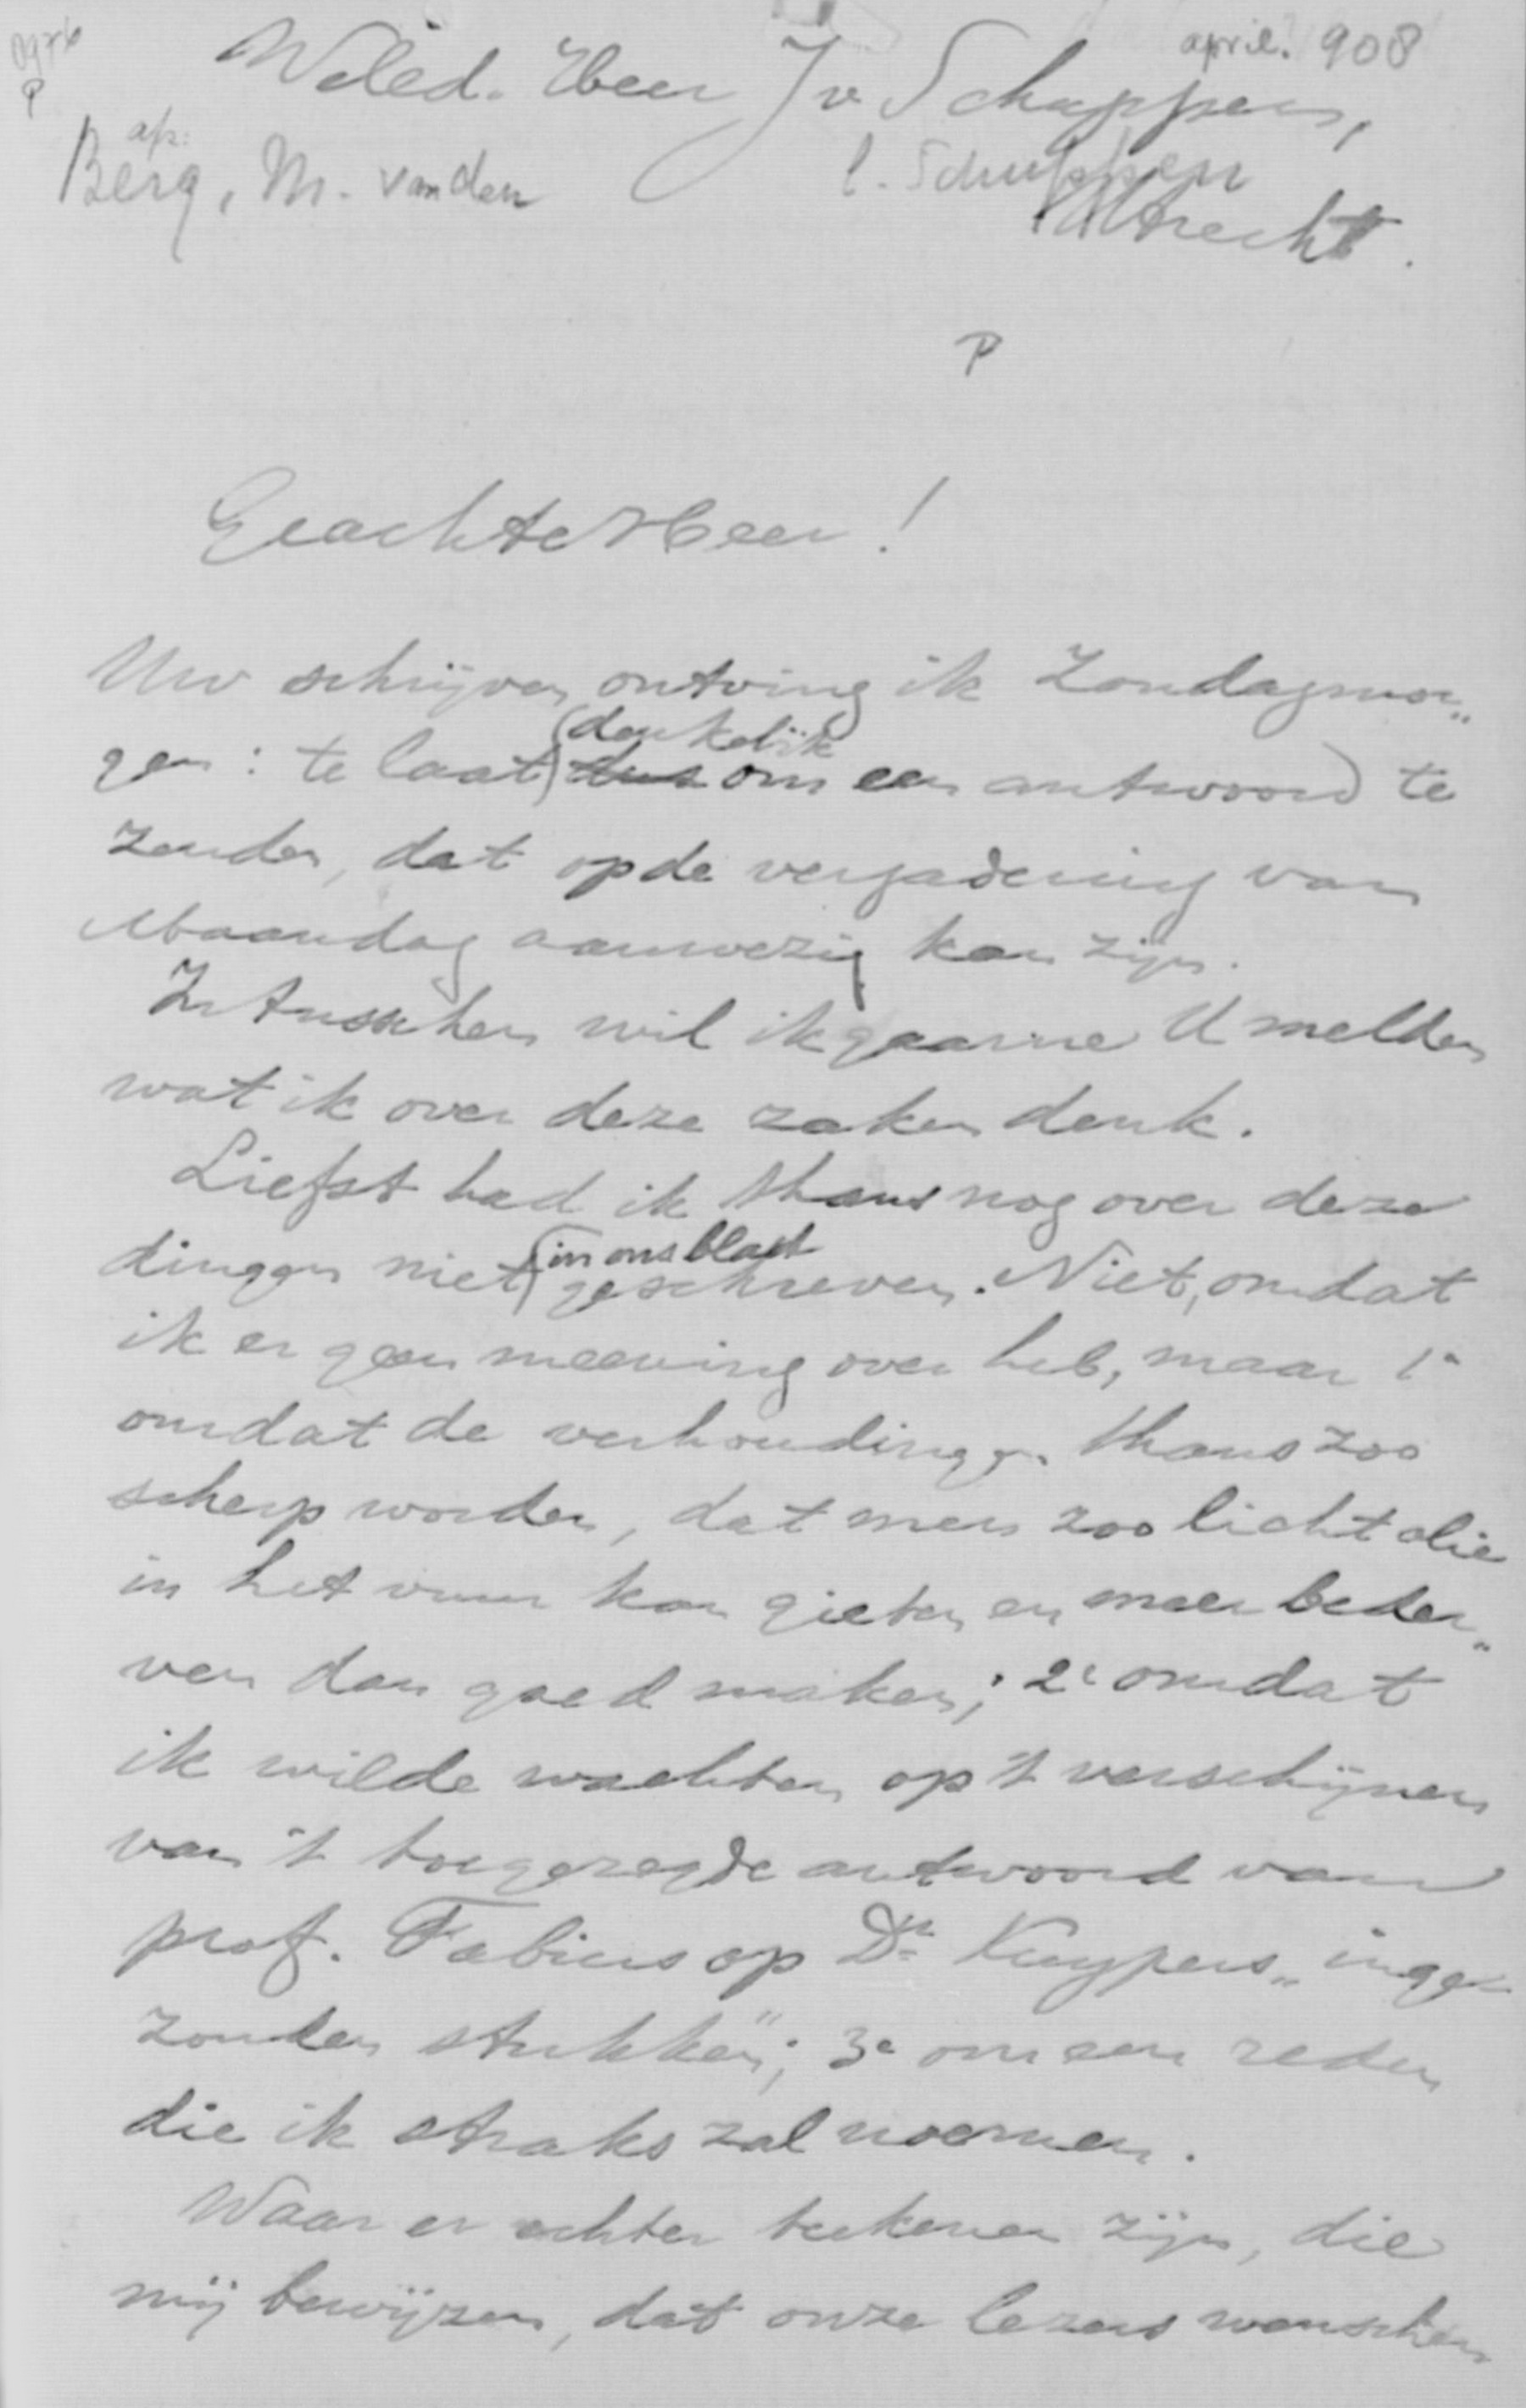 april. 908
Weled. Heer J v Schuppen,
afz:
Berg, M. van den
Schuppen
Utrecht.
P
Geachte Heer!
Uw schrijven ontving ik Zondagmor„
(denkelijk
gen: te laat) dus om een antwoord te
zenden, dat op de vergadering van
Maandag aanwezig kan zijn.
Intusschen wil ik gaarne U melden
wat ik over deze zaken denk.
Liefst had ik thans nog over deze
(in ons blad
dingen niet) geschreven. Niet, omdat
ik er geen meening over heb, maar 1e
omdat de verhoudingen thans zoo
scherp worden, dat men zoo licht olie
in het vuur kan gieten en meer beder„
ven dan goed maken; 2e omdat
ik wilde wachten op 't verschijnen
van 't toegezegde antwoord van
prof. Fabius op Dr Kuypers „inge-
zonden stukken"; 3e om een reden
die ik straks zal noemen.
Waar er echter teekenen zijn, die
mij bewijzen, dat onze lezers wenschen